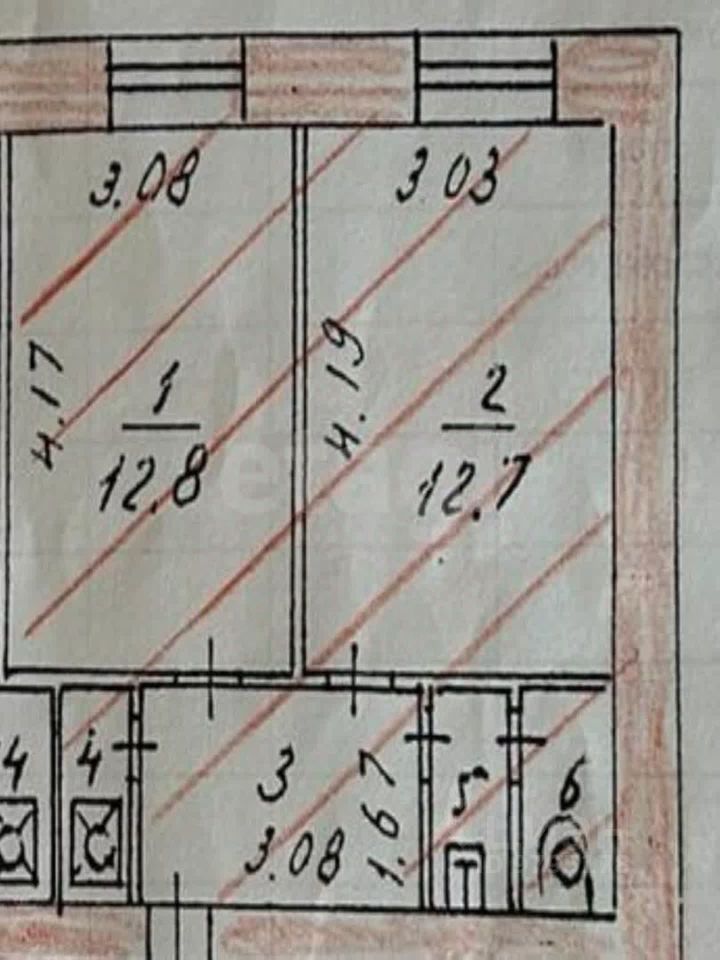 3.08
3.03
4.17
4.19
1
12.8
2
12.7
4
4
3
3.08
1.67
5
6